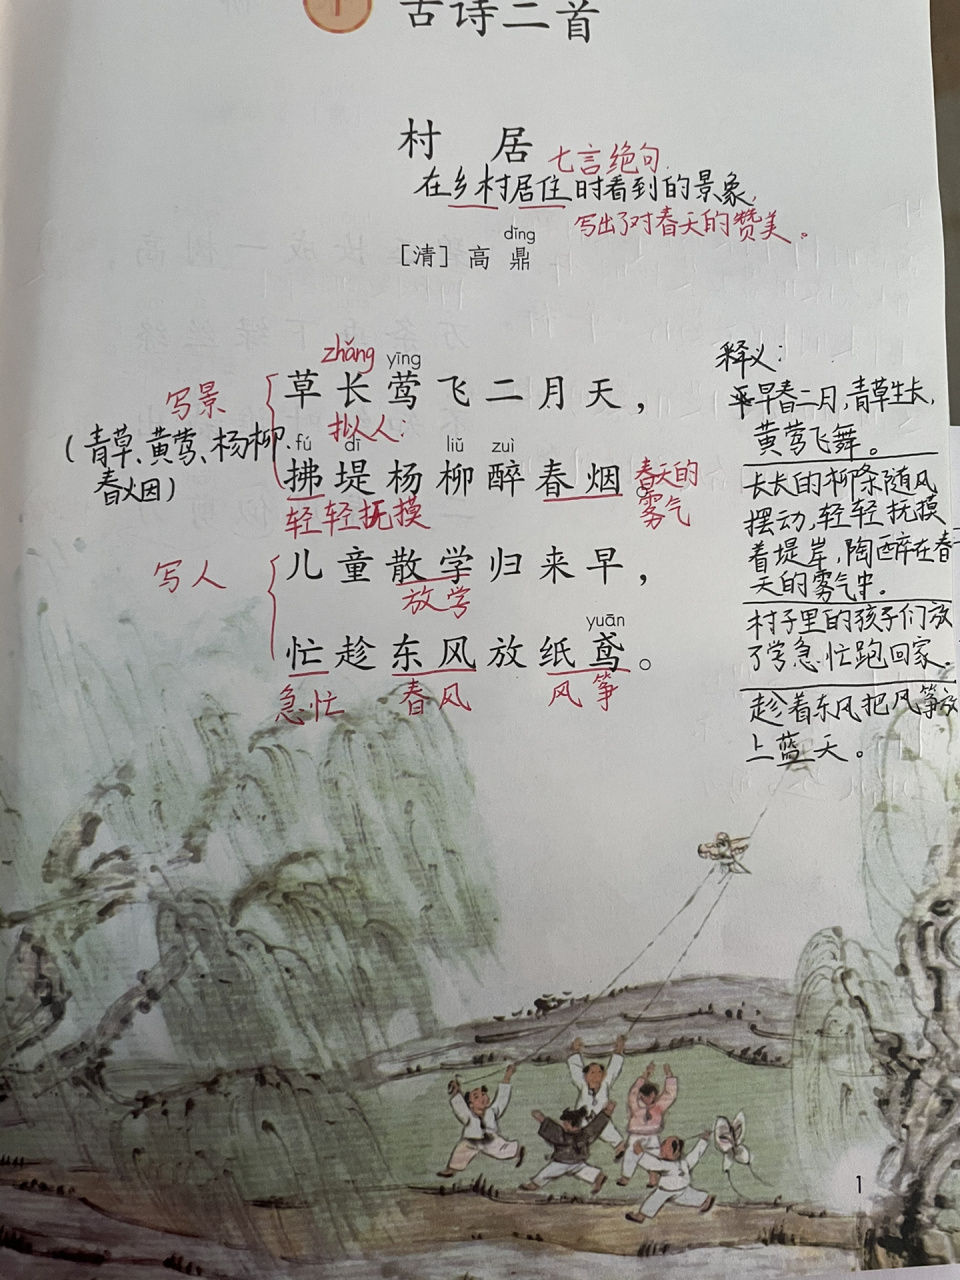 古诗二首
村居
七言绝句
在乡村居住时看到的景象,
写出了对春天的赞美。
dǐng
[清] 高鼎
zhǎng yīng
草长莺飞二月天，
写景
(青草、黄莺、杨柳、
春烟)
拟人:
fú dī liǔ zuì
拂堤杨柳醉春烟
轻轻抚摸
春天的
雾气
儿童散学归来早，
写人
放学
yuān
忙趁东风放纸鸢。
急忙 春风 风筝
释义:
早春二月,青草生长,
黄莺飞舞。
长长的柳条随风
摆动,轻轻抚摸
着堤岸,陶醉在春
天的雾气中。
村子里的孩子们放
了学急忙跑回家.
趁着东风把风筝放
上蓝天。
1